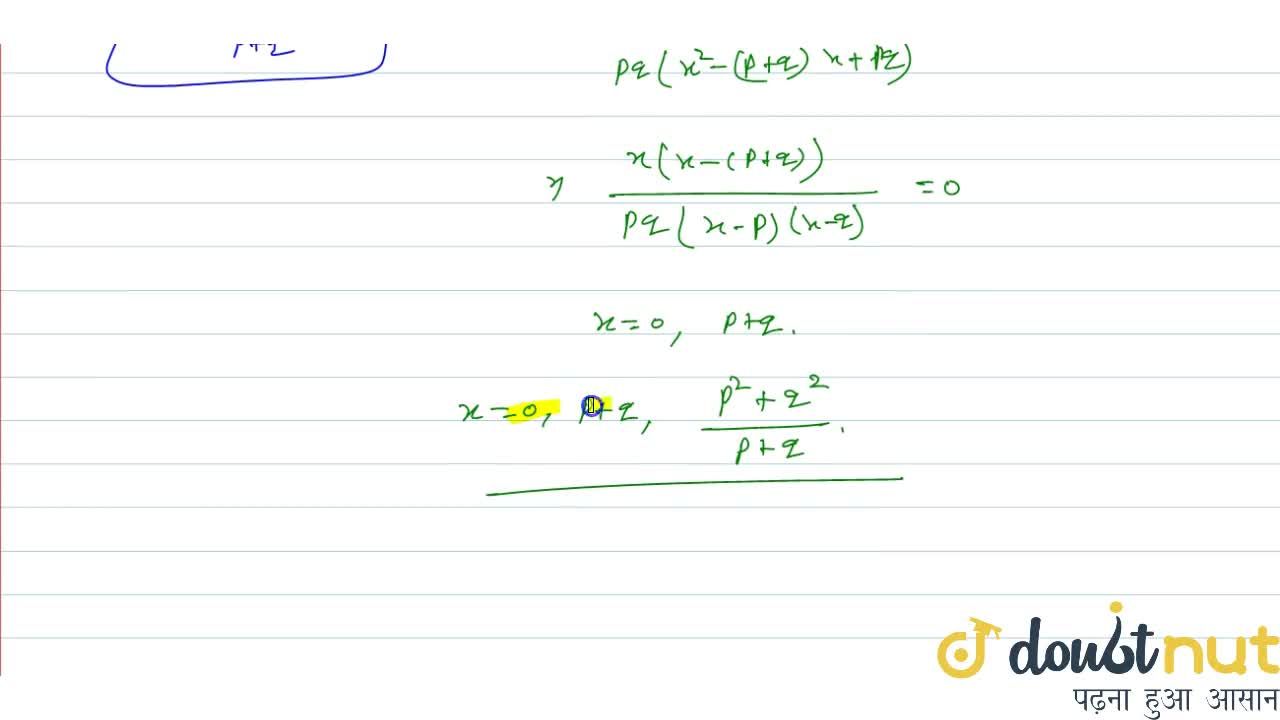 p+q
pq(x²-(p+q) x+pq)
x(x-(p+q))
pq(x-p)(x-q)
=0
x=0, p+q.
x=0, p+q, p²+q²
p+q.
doubtnut
पढ़ना हुआ आसान